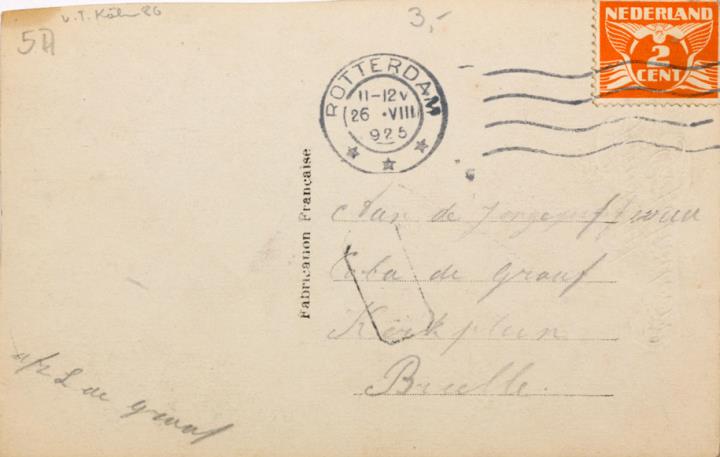 v.T. Köln 86
3,-
5D
NEDERLAND
2
CENT
ROTTERDAM
11-12V
26 · VIII
925
Fabrication Française
Aan de Jongejuffrouw
Coba de Graaf
Kerkplein
Brielle.
afz L de Graaf